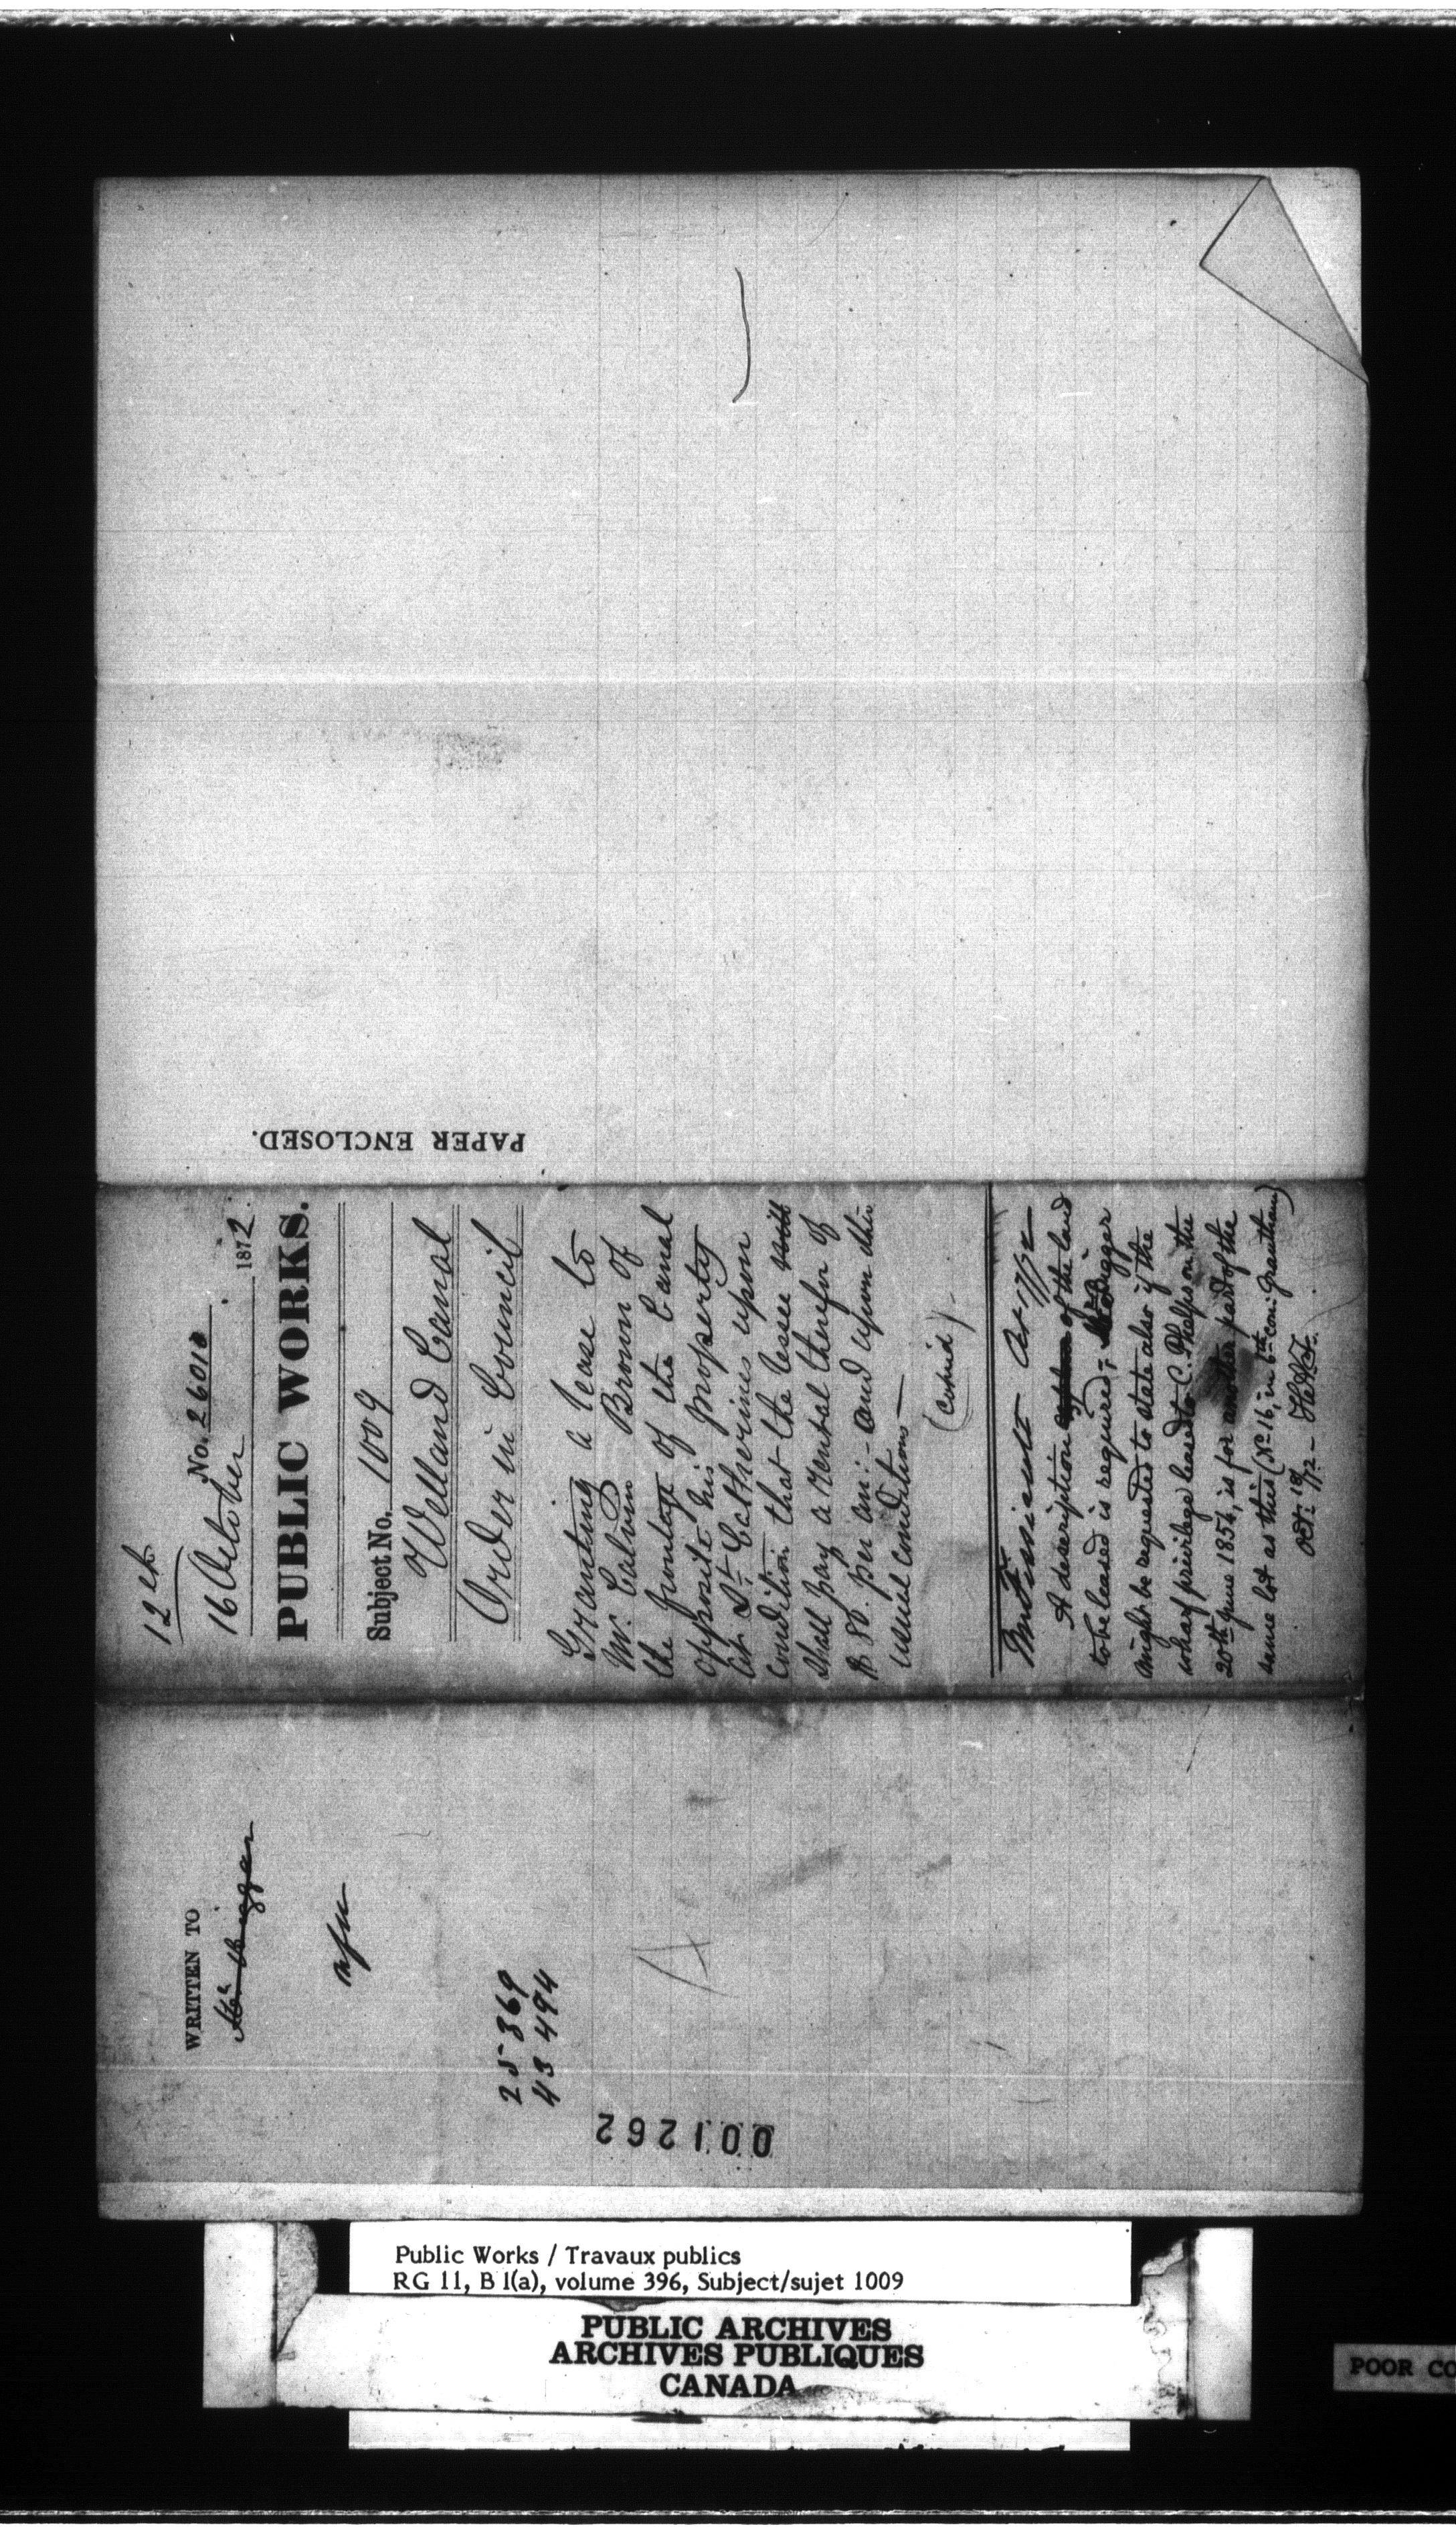 PAPER ENCLOSED.
12 ch
No. 26010
16 October 1872.
PUBLIC WORKS.
Subject No. 1009
Welland Canal
Order in Council
Granting a lease to
Mr. Calvin Brown of
the frontage of the Canal
opposite his property
at St. Catherines upon
condition that the lessee
shall pay a rental therefor of
$80. per an:- and upon the
usual conditions—
17/72
A description of the land
to be leased is required;
might be requested to state also if the
wharf privilege leased to C. Phelps on the
20th June 1854, is for another part of the
same lot as this (No. 16, in 6th con: Grantham)
Oct: 18/72
WRITTEN TO
25 369
43 494
001262
Public Works / Travaux publics
RG 11, B 1(a), volume 396, Subject/sujet 1009
PUBLIC ARCHIVES
ARCHIVES PUBLIQUES
CANADA
POOR CO